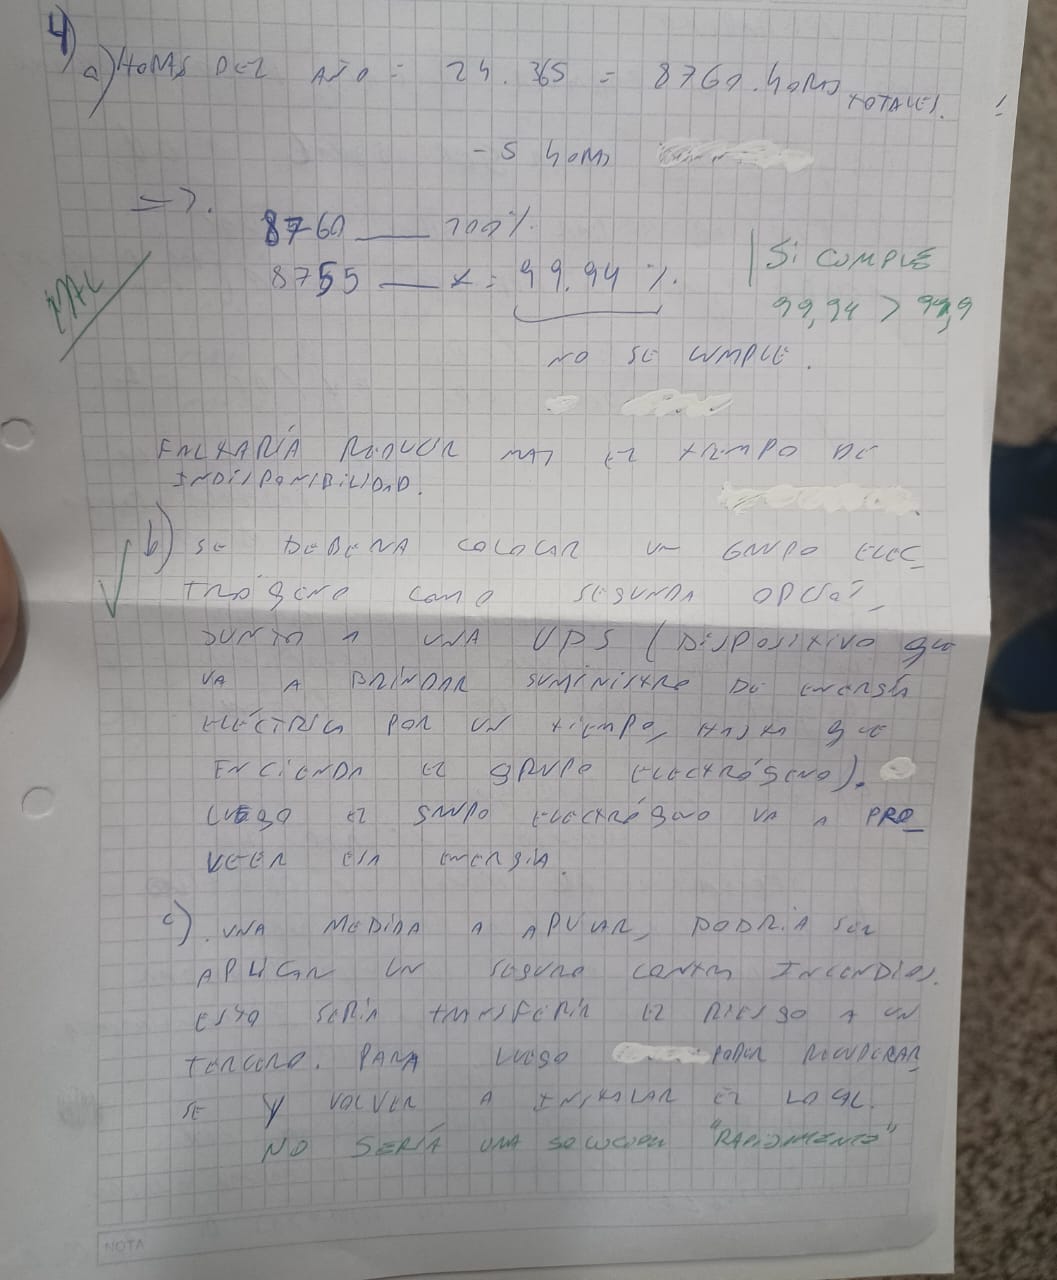 4)
a) HORAS DEL AÑO = 24.365 = 8760.hORAS TOTALES.
- 5 hORAS
=>.
8760 ___ 100%.
8755 ___ x = 99.94 %.
MAL
Si CUMPLE
99,94 > 99,9
NO SE CUMPLE.
FALTARÍA REDUCIR MAS EL TIEMPO DE
INDISPONIBILIDAD.
b) SE DEBERIA COLOCAR UN GRUPO ELEC_
TRÓGENO COMO SEGUNDA OPCIÓN,
JUNTO A UNA UPS (DISPOSITIVO QUE
VA A BRINDAR SUMINISTRO DE ENERGÍA
ELÉCTRICA POR UN TIEMPO, HASTA QUE
ENCIENDA EL GRUPO ELECTRÓGENO).
LUEGO EL GRUPO ELECTRÓGENO VA A PRO_
VEER ESA ENERGIA.
c). UNA MEDIDA A APLICAR, PODRIA SER
APLICAR UN SEGURO CONTRA INCENDIOS.
ESTO SERIA TRANSFERIR EL RIESGO A UN
TERCERO. PARA LUEGO PODER RECUPERAR_
SE Y VOLVER A INSTALAR EL LOCAL.
NO SERÍA UNA SOLUCION "RAPIDAMENTE"
NOTA